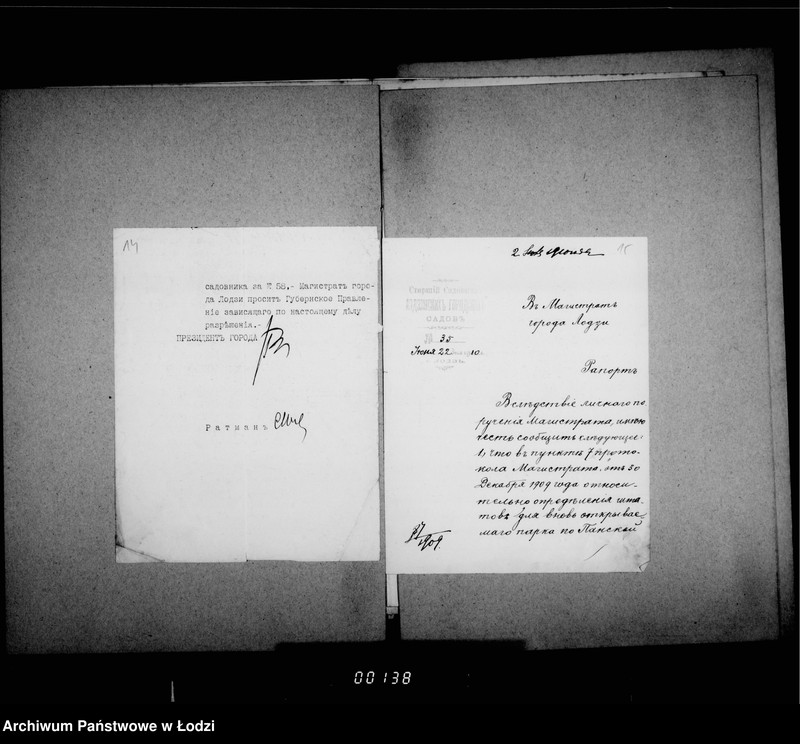 14
садовника за № 58.- Магистратъ горо-
да Лодзи проситъ Губернское Правле-
ніе зависящаго по настоящему дѣлу
разрѣшенія.-
ПРЕЗИДЕНТЪ ГОРОДА
Ратманъ
15
Старшій
ГОРОДСКИХЪ
САДОВЪ
№ 35
Іюня 22 10
Въ Магистратъ
города Лодзи
Рапортъ
Вслѣдствіе личнаго по
рученія Магистрата, имѣю
честь сообщить слѣдующее:
1, что въ пунктѣ 7 прото-
кола Магистрата, отъ 30
Декабря 1909 года относи-
тельно опредѣленія шта-
товъ для вновь открывае-
маго парка по Панской
1909.
00138
Archiwum Państwowe w Łodzi